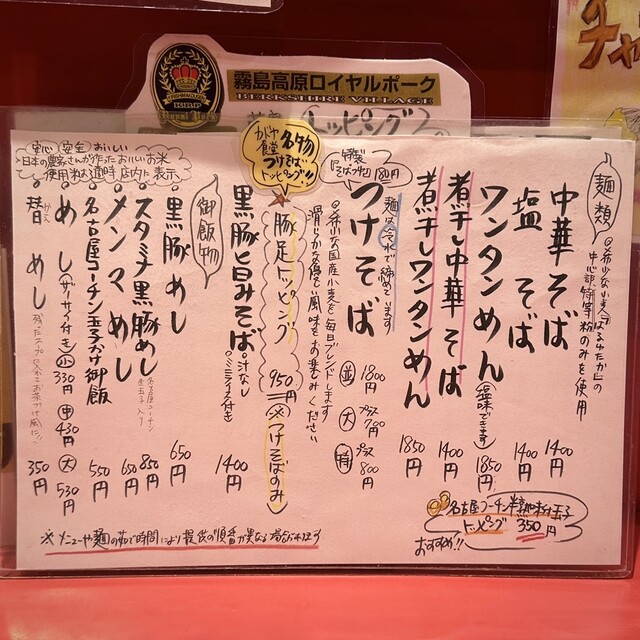 霧島高原ロイヤルポーク
BERKSHIRE VILLAGE
トッピング
チャ
麺類
◎希少な小麦「はるゆたか」の
中心部、特等粉のみを使用
中華そば 1400円
塩そば 1400円
ワンタンめん(塩味できます) 1850円
煮干し中華そば 1400円
煮干しワンタンめん 1850円
麺は冷水で締めています
特製
そばつゆ 180円
つけそば
並 1800円
大 プラス700円
特 プラス800円
◎希少な国産小麦を毎日ブレンドします
滑らかな優しい風味をお楽しみください
名物
つけそば
トッピング!!
豚足トッピング 950円(※つけそばのみ)
黒豚旨みそば ◎汁なし
◎ミニライス付き 1400円
御飯物
安心 安全 おいしい
日本の農家さんが作ったおいしいお米
使用 店内に表示
黒豚めし 650円
スタミナ黒豚めし 名古屋コーチン
生玉子入り 850円
メンマめし 650円
名古屋コーチン玉子かけ御飯 550円
めし(ザーサイ付き) 小 330円 中 430円 大 530円
替めし 残ったスープに入れるお茶づけ風に!! 350円
名古屋コーチン半熟味付玉子
トッピング 350円
おすすめ!!
※メニューや麺の茹で時間により提供の順番が異なる場合があります